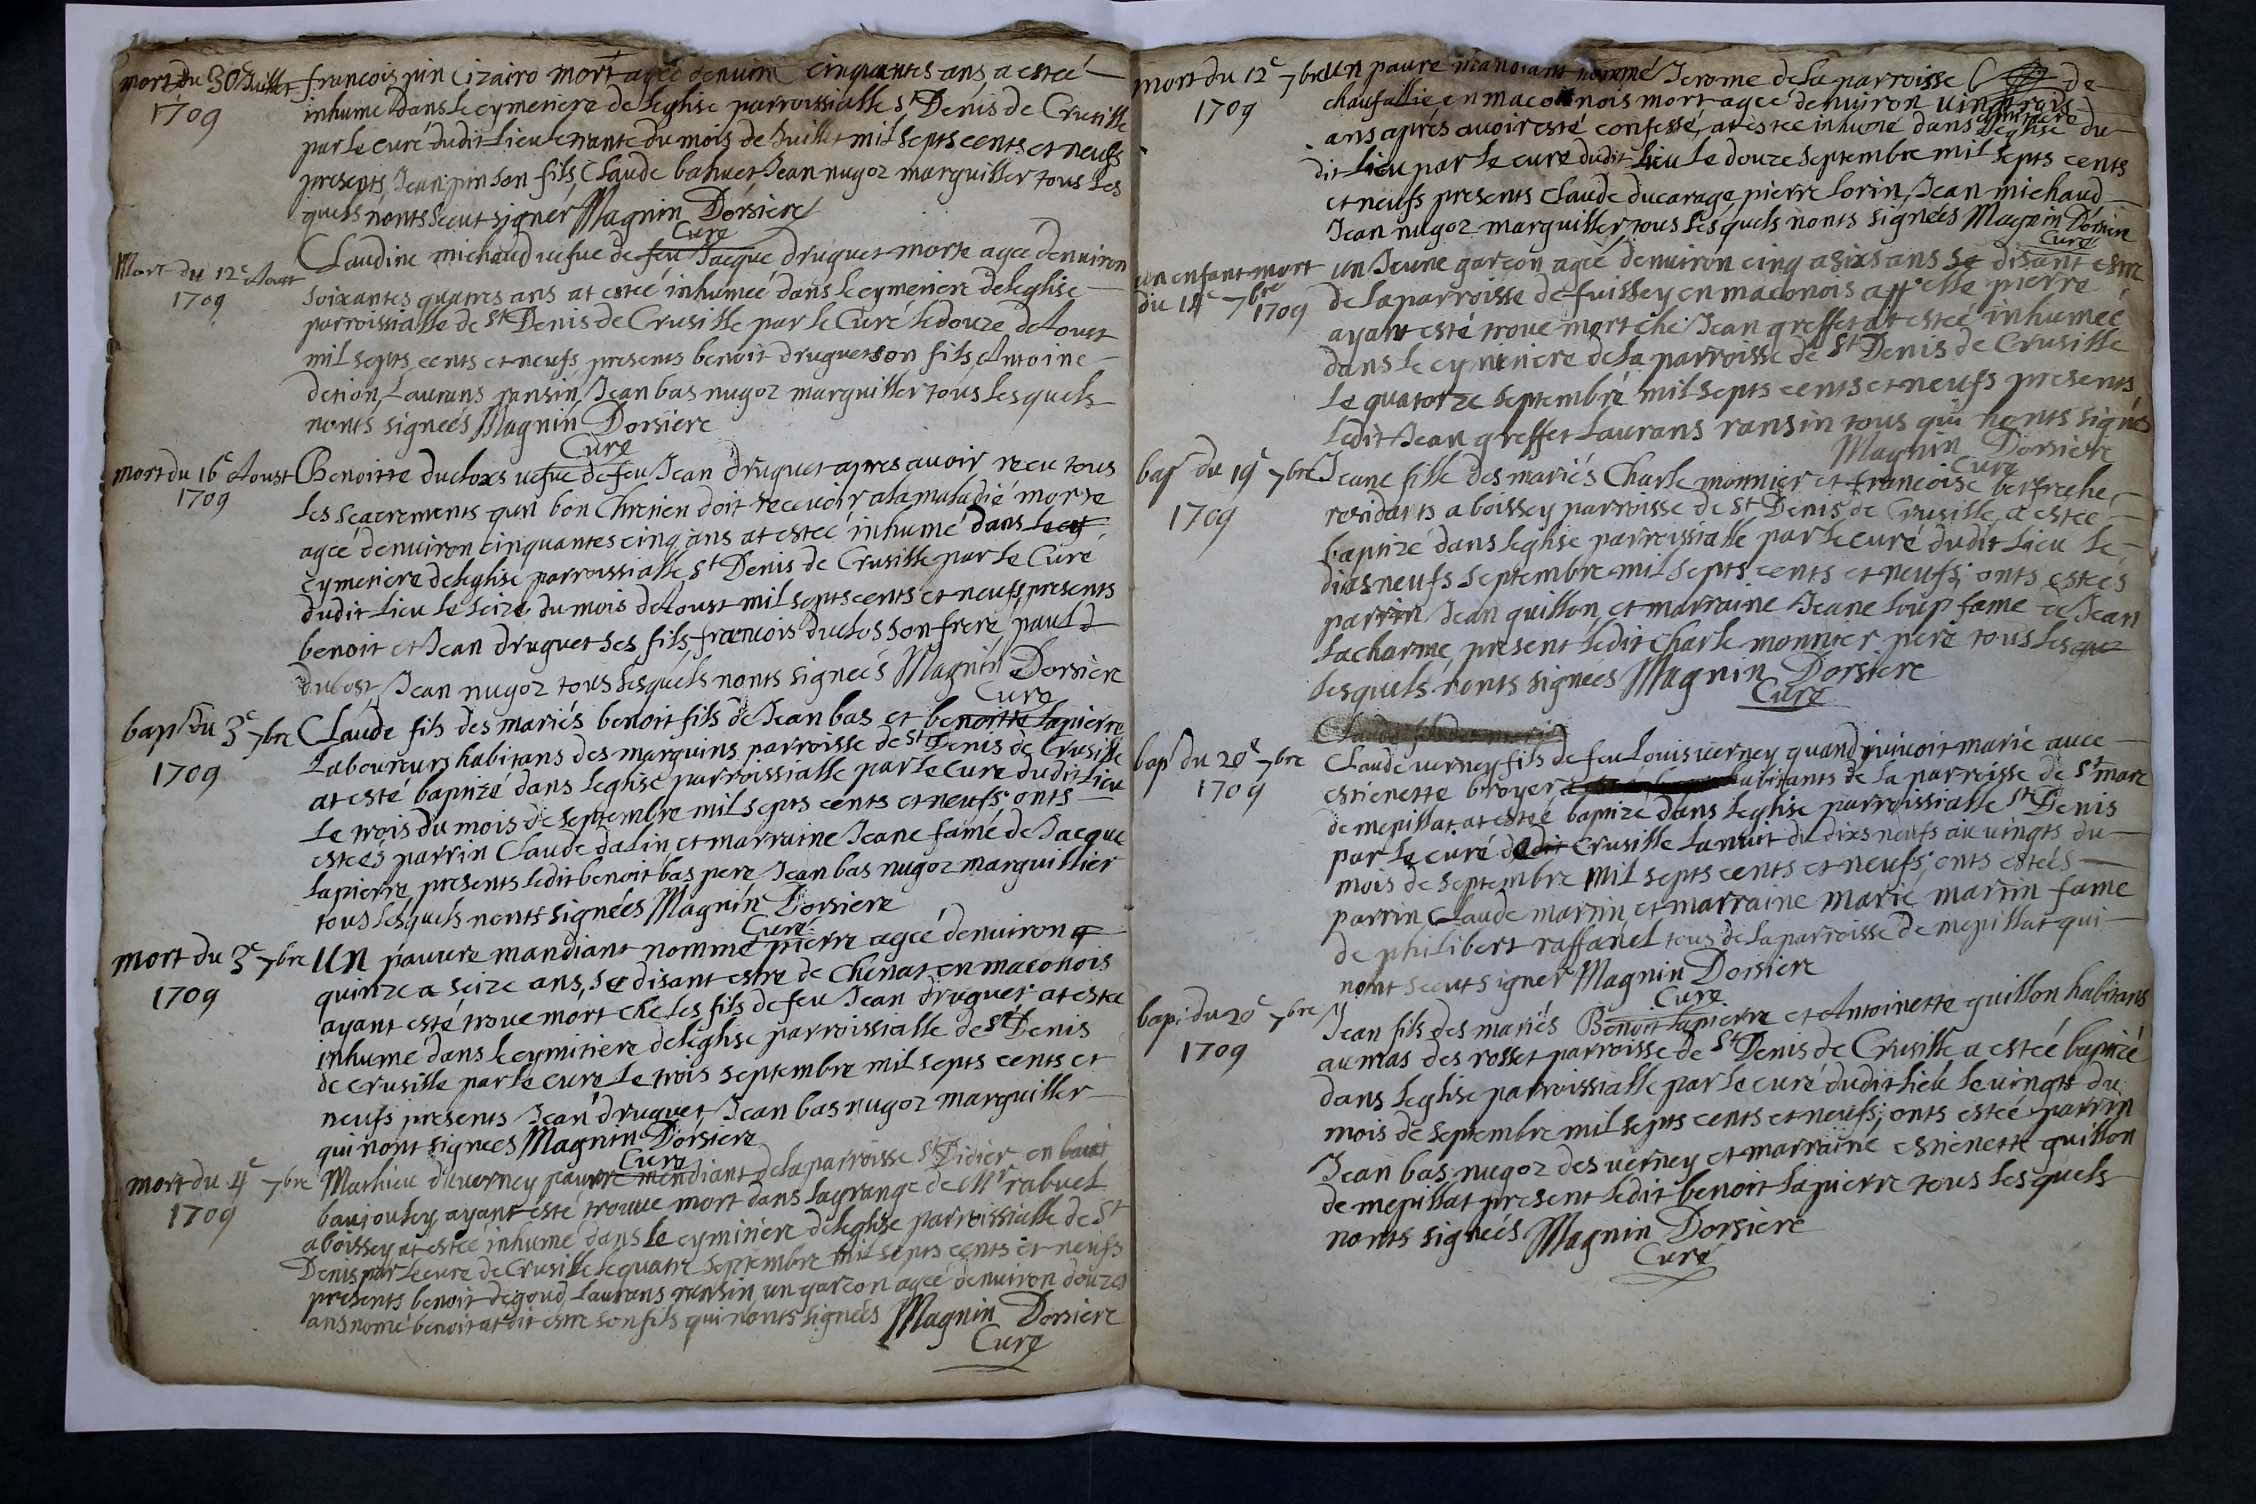 mort du 30 Juillet
1709
francois pin Cizairo mort agéé denuiro cinquantes ans a esteé
inhumé dans le cymetiere de leglise parroissialle St Denis de Crusille
par le curé dudit lieu le trante du mois de Juillet mil septs cents et neufs
presents Jean pin son fils Claude bahuet Jean nugoz marguiller tous les
quels nonts sceut signer Magnin Dorsiere
Curé
Mort du 12e Aoust
1709
Claudine michaud uefue de feu Jacque druguet morte agee denuiron
soixantes quatres ans at esteé inhumeé dans le cymetiere de leglise
parroissialle de St Denis de Crusille par le Curé le douze daoust
mil septs cents et neufs presents benoit druguet son fils Antoine
detion, Laurans ransin, Jean bas nugoz marguiller tous lesquels
nonts signeés Magnin Dorsiere
Curé
mort du 16e Aoust
1709
Benoitte ducloxs uefue de feu Jean druguet apres auoir receu tous
les seacrements qun bon Chretien doit receuoir a la maladié morte
ageé denuiron cinquantes cinq ans at esteé inhumé dans le cy
cymetiere de leglise parroissialle St Denis de Crusille par le Curé
dudit lieu le seize du mois daoust mil septs cents et neufs presents
benoit et Jean druguet ses fils, francois duclos son frere, paul d
dubost, Jean nugoz tous lesquels nonts signeés Magnin Dorsiere
Curé
bapt du 3e 7bre
1709
Claude fils des mariés benoit fils de Jean bas et benoitte lapierre
laboureurs habitans des marquins parroisse de St Denis de Crusille
at esté baptizé dans leglise parroissialle par le Curé dudit lieu
le trois du mois de septembre mil septs cents et neufs; onts
esteés parrin Claude dalin et marraine Jeane famé de Jacque
lapierre, presents ledit benoit bas pere Jean bas nugoz marguillier
tous lesquels nonts signées Magnin Dorsiere
Curé
mort du 3e 7bre
1709
un pauure mandiant nommé pierre ageé denuiron q
quinze a seize ans, se disant estre de Chenas en maconois
ayant esté trouue mort ché les fils de feu Jean druguet at estee
inhumé dans le cymitiere de leglise parroissialle de St Denis
de crusille par le curé le trois septembre mil septs cents et
neufs presents Jean druguet Jean bas nugoz marguiller
qui nont signees Magnin Dorsiere
Curé
mort du 4e 7bre
1709
Mathieu duuerney pauure mendiant de la parroisse St Didier en baut
baujouley ayant esté trouue mort dans la grange de Mr rabuel
a boissey at esteé inhumé dans le cymitiere de leglise parroissialle de St
Denis par le cure de Crusille le quatre septembre mil septs cents et neufs
presents benoit degoud Laurans ransin un garcon ageé denuiron douzes
ans nomé benoit at dit estre son fils qui nonts signeés Magnin Dorsiere
Curé
mort du 12e 7bre
1709
un paure mandiant nommé Jerome de la parroisse de
chaufallie en maconnois mort ageé denuiron uingt trois
ans aprés auoir esté confessé, at estee inhumé dans cymetiere leglise du
dit lieu par le curé dudit lieu le douze septembre mil septs cents
et neufs presents Claude ducarage, pierre lorin, Jean michaud
Jean nugoz marguiller tous lesquels nonts signées Magnin Dorsiere
Curé
un enfant mort
du 14e 7bre 1709
un Jeune garcon ageé denuiron cinq a sixs ans se disant estre
de la parroisse de fuissey en maconois appelle pierre
ayant esté trouué mort ché Jean greffet at estee inhumeé
dans le cymetiere de la parroisse de St Denis de Crusille
le quatorze septembre mil septs cents et neufs presents
ledit Jean greffet Laurans ransin tous qui nonts signés
Magnin Dorsiere
Curé
bapt du 19e 7bre
1709
Jeane fille des mariés Charle monnier et francoise berfreche
residants a boissey parroisse de St Denis de Crusille a esteé
baptizé dans leglise parroissialle par le curé dudit lieu le
dixsneufs septembre mil septs cents et neufs; onts esteés
parrin Jean guillon et marraine Jeane loup fame de Jean
lacharme, present ledit Charle monnier pere tous lesquez
lesquels nonts signées Magnin Dorsiere
Curé
Claude fils des mariés
bapt du 20e 7bre
1709
Claude uerney fils de feu Louis uerney quand uiuoit marie auec
estienette broyer habitants de la parroisse de St marc
de mepillat at esteé baptizé dans leglise parroissialle St Denis
par le curé dudit Crusille la nuit du dixs neufs au uingts du
mois de septembre mil septs cents et neufs; onts esteés
parrin Claude martin et marraine marie martin fame
de philibert raffanel tous de la parroisse de mepillat qui
nont sceut signer Magnin Dorsiere
Curé
bapt du 20e 7bre
1709
Jean fils des mariés Benoit lapierre et Antoinette guillon habitans
au mas des rosset parroisse de St Denis de Crusille a esteé baptizé
dans leglise parroissialle par le curé dudit lieu le uingts du
mois de septembre mil septs cents et neufs; onts esteé parrin
Jean bas nugoz des uerney et marraine estienette guillon
de mepillat present ledit benoit lapierre tous lesquels
nonts signeés Magnin Dorsiere
Curé